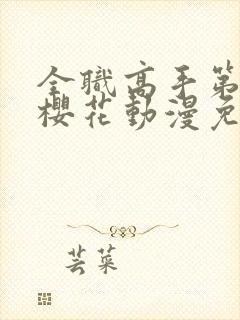 全職高手第
櫻花動漫免
芸菜